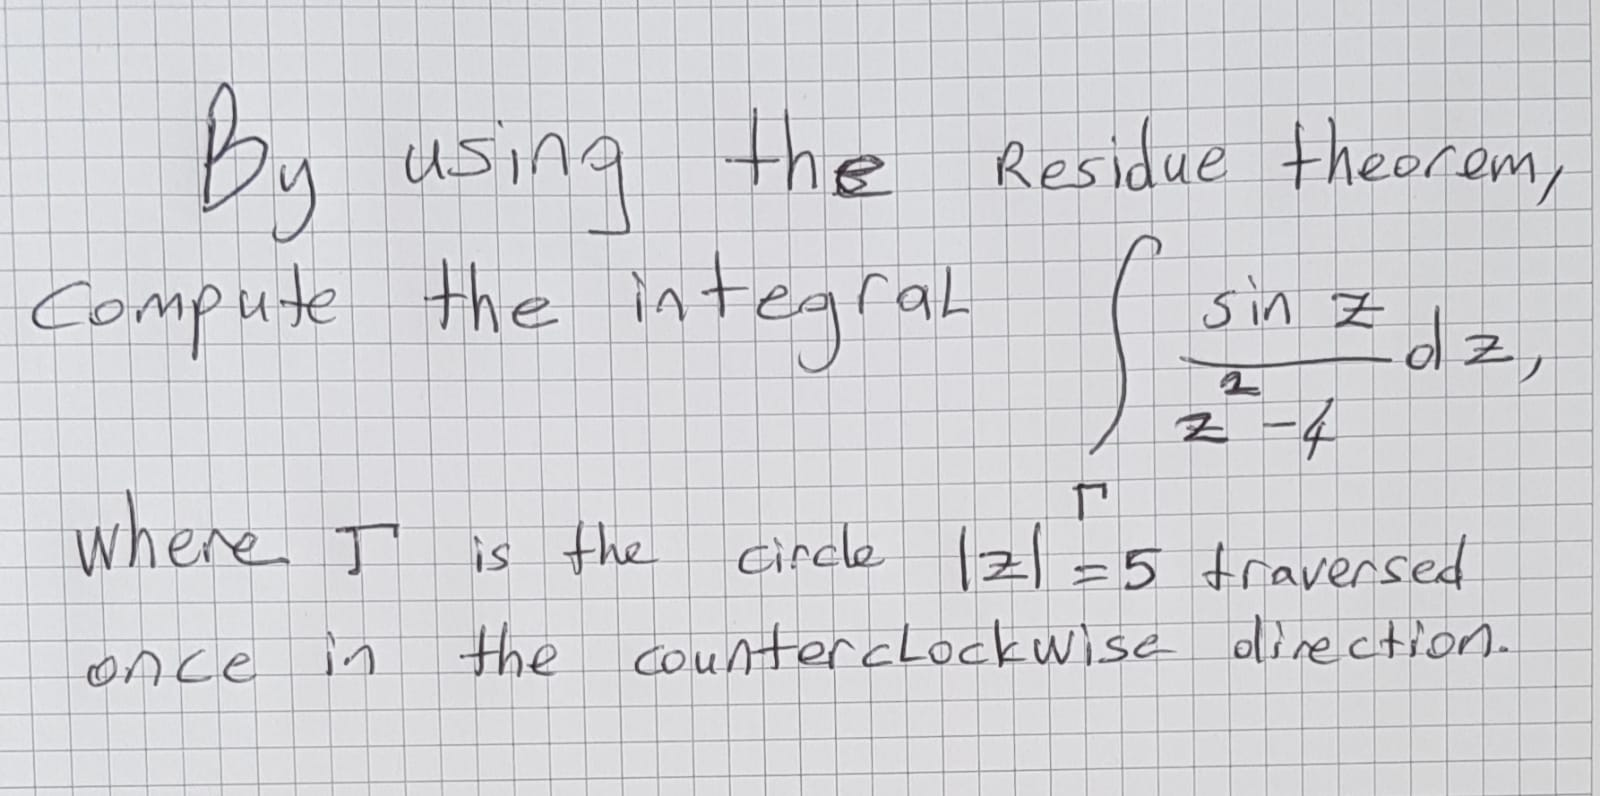 By using the Residue theorem,
compute the integral ∫_Γ (sin z)/(z² - 4) dz,
where Γ is the circle |z| = 5 traversed
once in the counterclockwise direction.